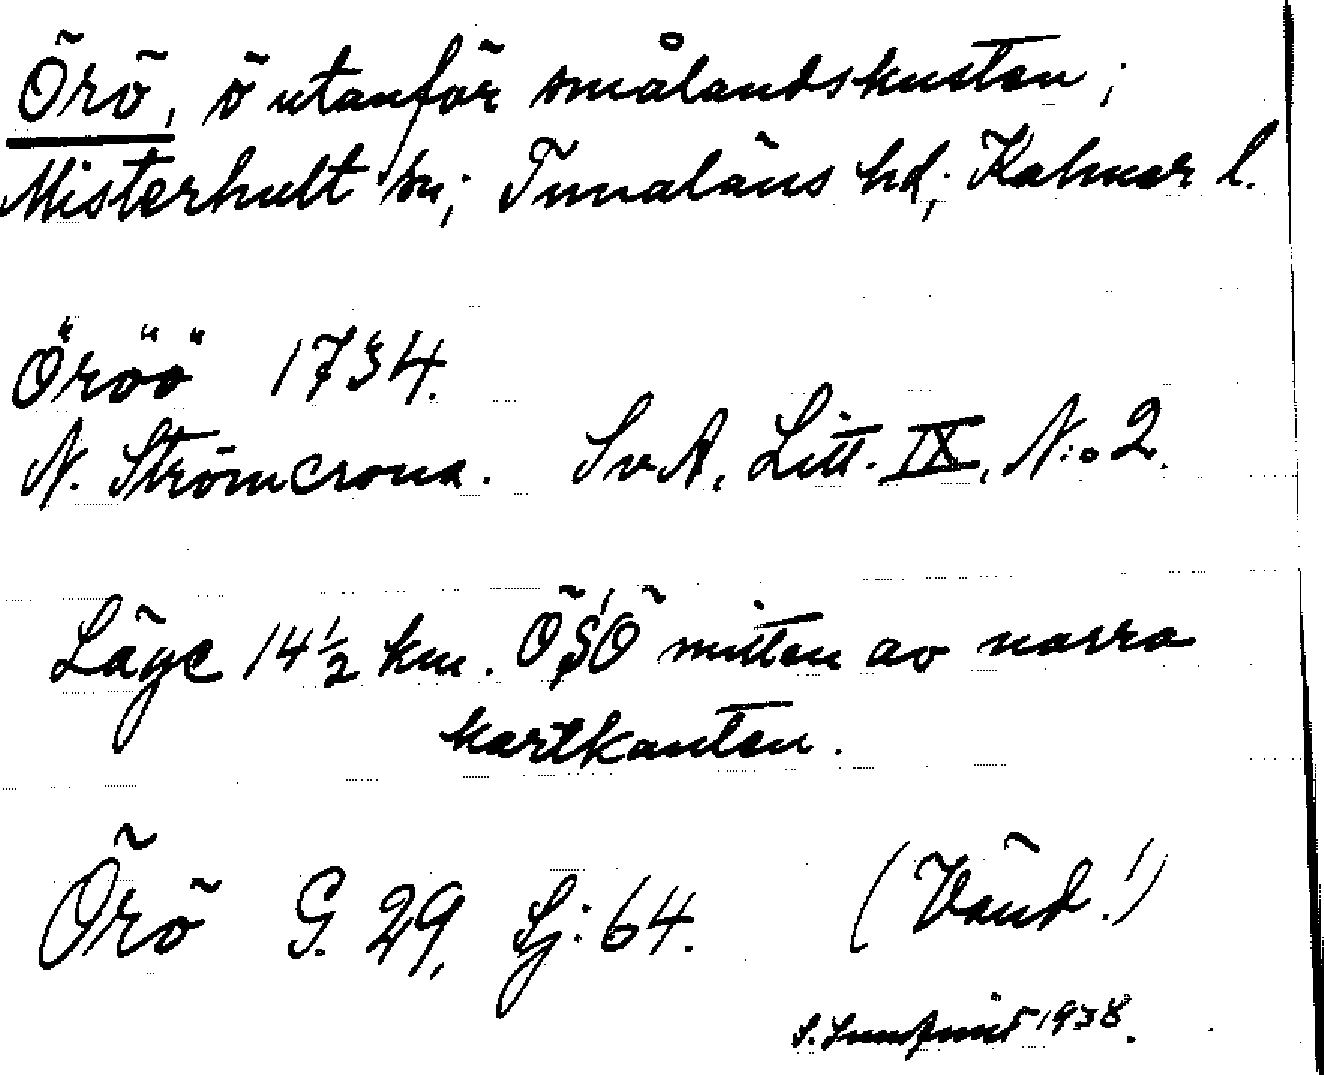 Örö, ö utanför smålandskusten;
Misterhult sn; Tunaläns hd; Kalmar l.
Öröö 1734.
N. Strömcrona. Sv. A, Litt. IX, N:o 2.
Läge 14 1/2 km. ÖSÖ mitten av norra
kartkanten.
Örö G. 29, Sj: 64. (Vänd!)
S. Lundqvist 1938.